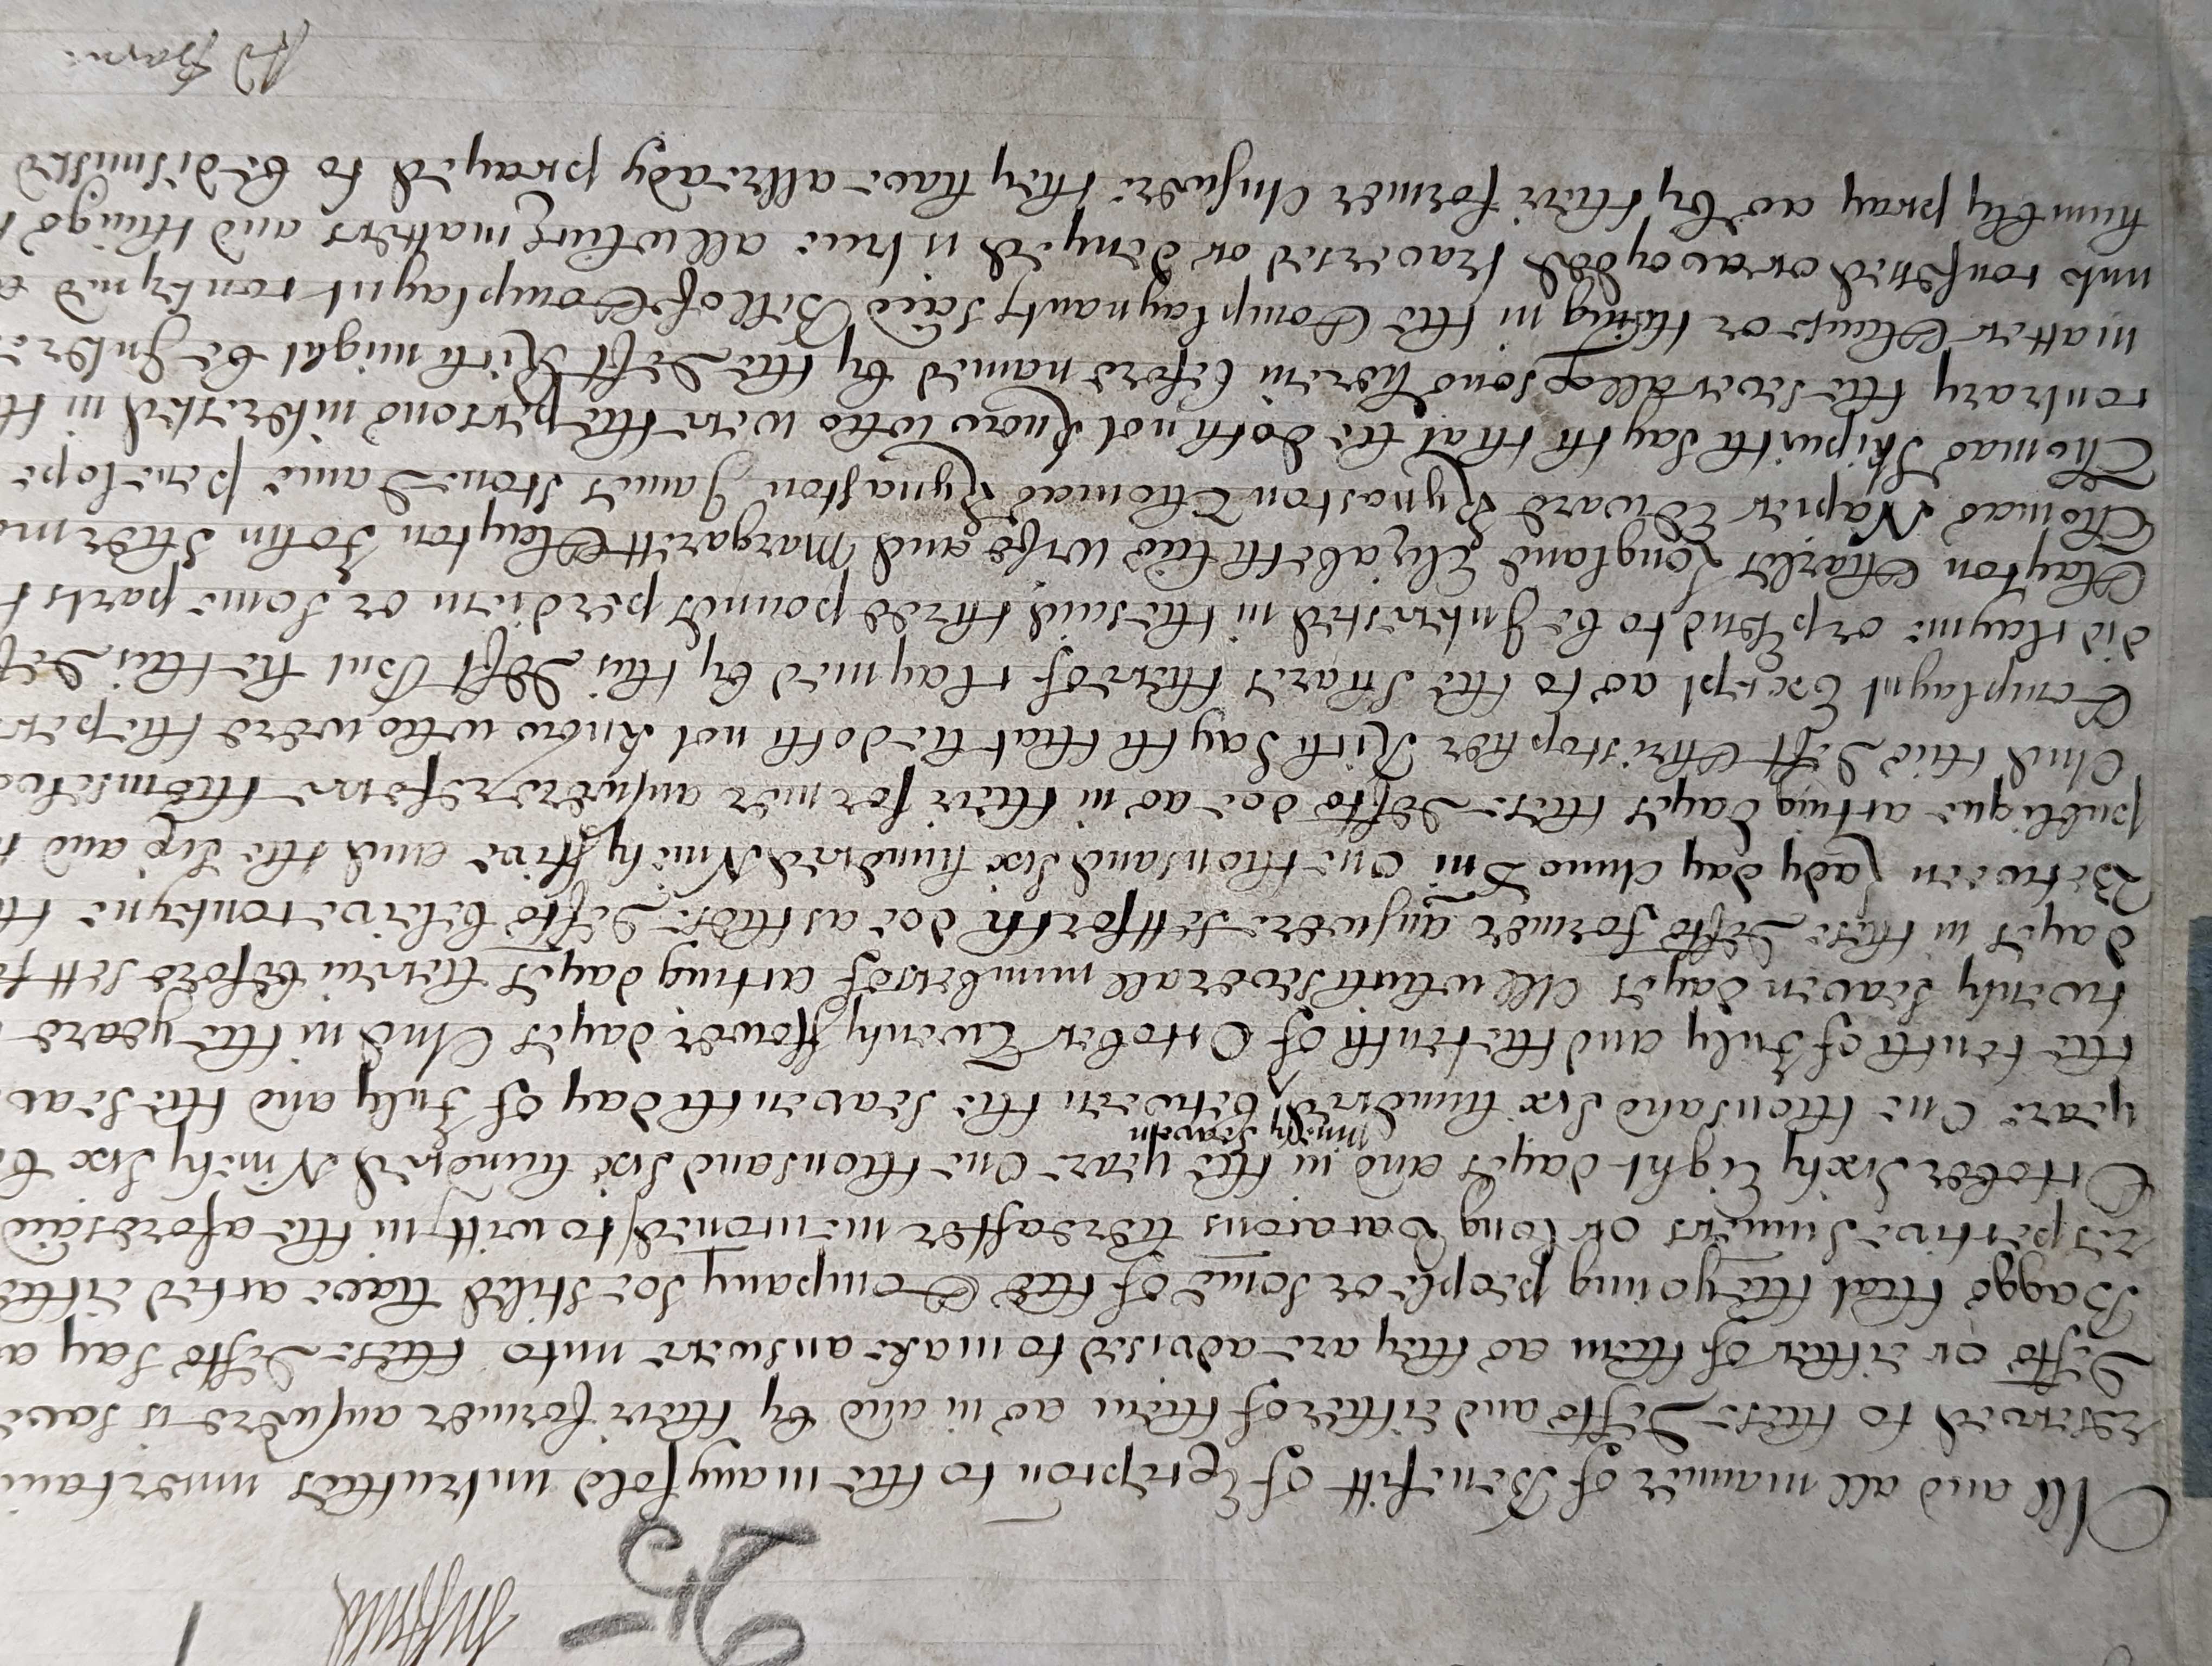 25
All and all manner of Benefitt of Excepcon to the manyfold untruthes
reserved to these Defts and either of them as in and by their former answere is
Defts or either of them as they are advised to make answere unto these Defts say
Baggs that the young people or some of the Company soe stiled have acted
respective Sumers or long Vacacons hereafter menconed to witt in the aforesaid
October Sixty Eight dayes and in the year One thousand Six hundred Ninety Six
yeare One thousand Six hundred Ninety Seaven betweene the seaventh day of July and the
the tenth of July and the tenth of October Twenty ffower dayes And in the yeare
twenty seaven dayes All which severall numbers of acting dayes herein before sett
dayes in these Defts former answere sett forth doe as these Defts beleive conteyne
Betweene Lady day Anno Dni One thousand Six hundred Ninety ffive and the Six and
publique acting dayes these Defts doe as in their former answere referre themselves
And this Deft Christopher Rich sayth that he doth not know who were the
Complaynt Except as to the Shares thereof claymed by this Deft But he this
did clayme or ptend to be Interested in the said three pounds per diem or some parts
Clayton Charles Longland Elizabeth his wife and Margarett Clayton John
Thomas Napier Edward Kynaston Thomas Kynaston James Stone Dame Penelope
Thomas Skipwith sayth that he doth not know who were the persons interested in
contrary the severall psons herein before named by the Deft Rich might be
matter Clause or thing in the Complaynants said Bill of Complaynt conteyned
unto confessed or avoyded traversed or denyed is true all which matters and things
humbly pray as by their former Answere they have allready prayed to be dismissed